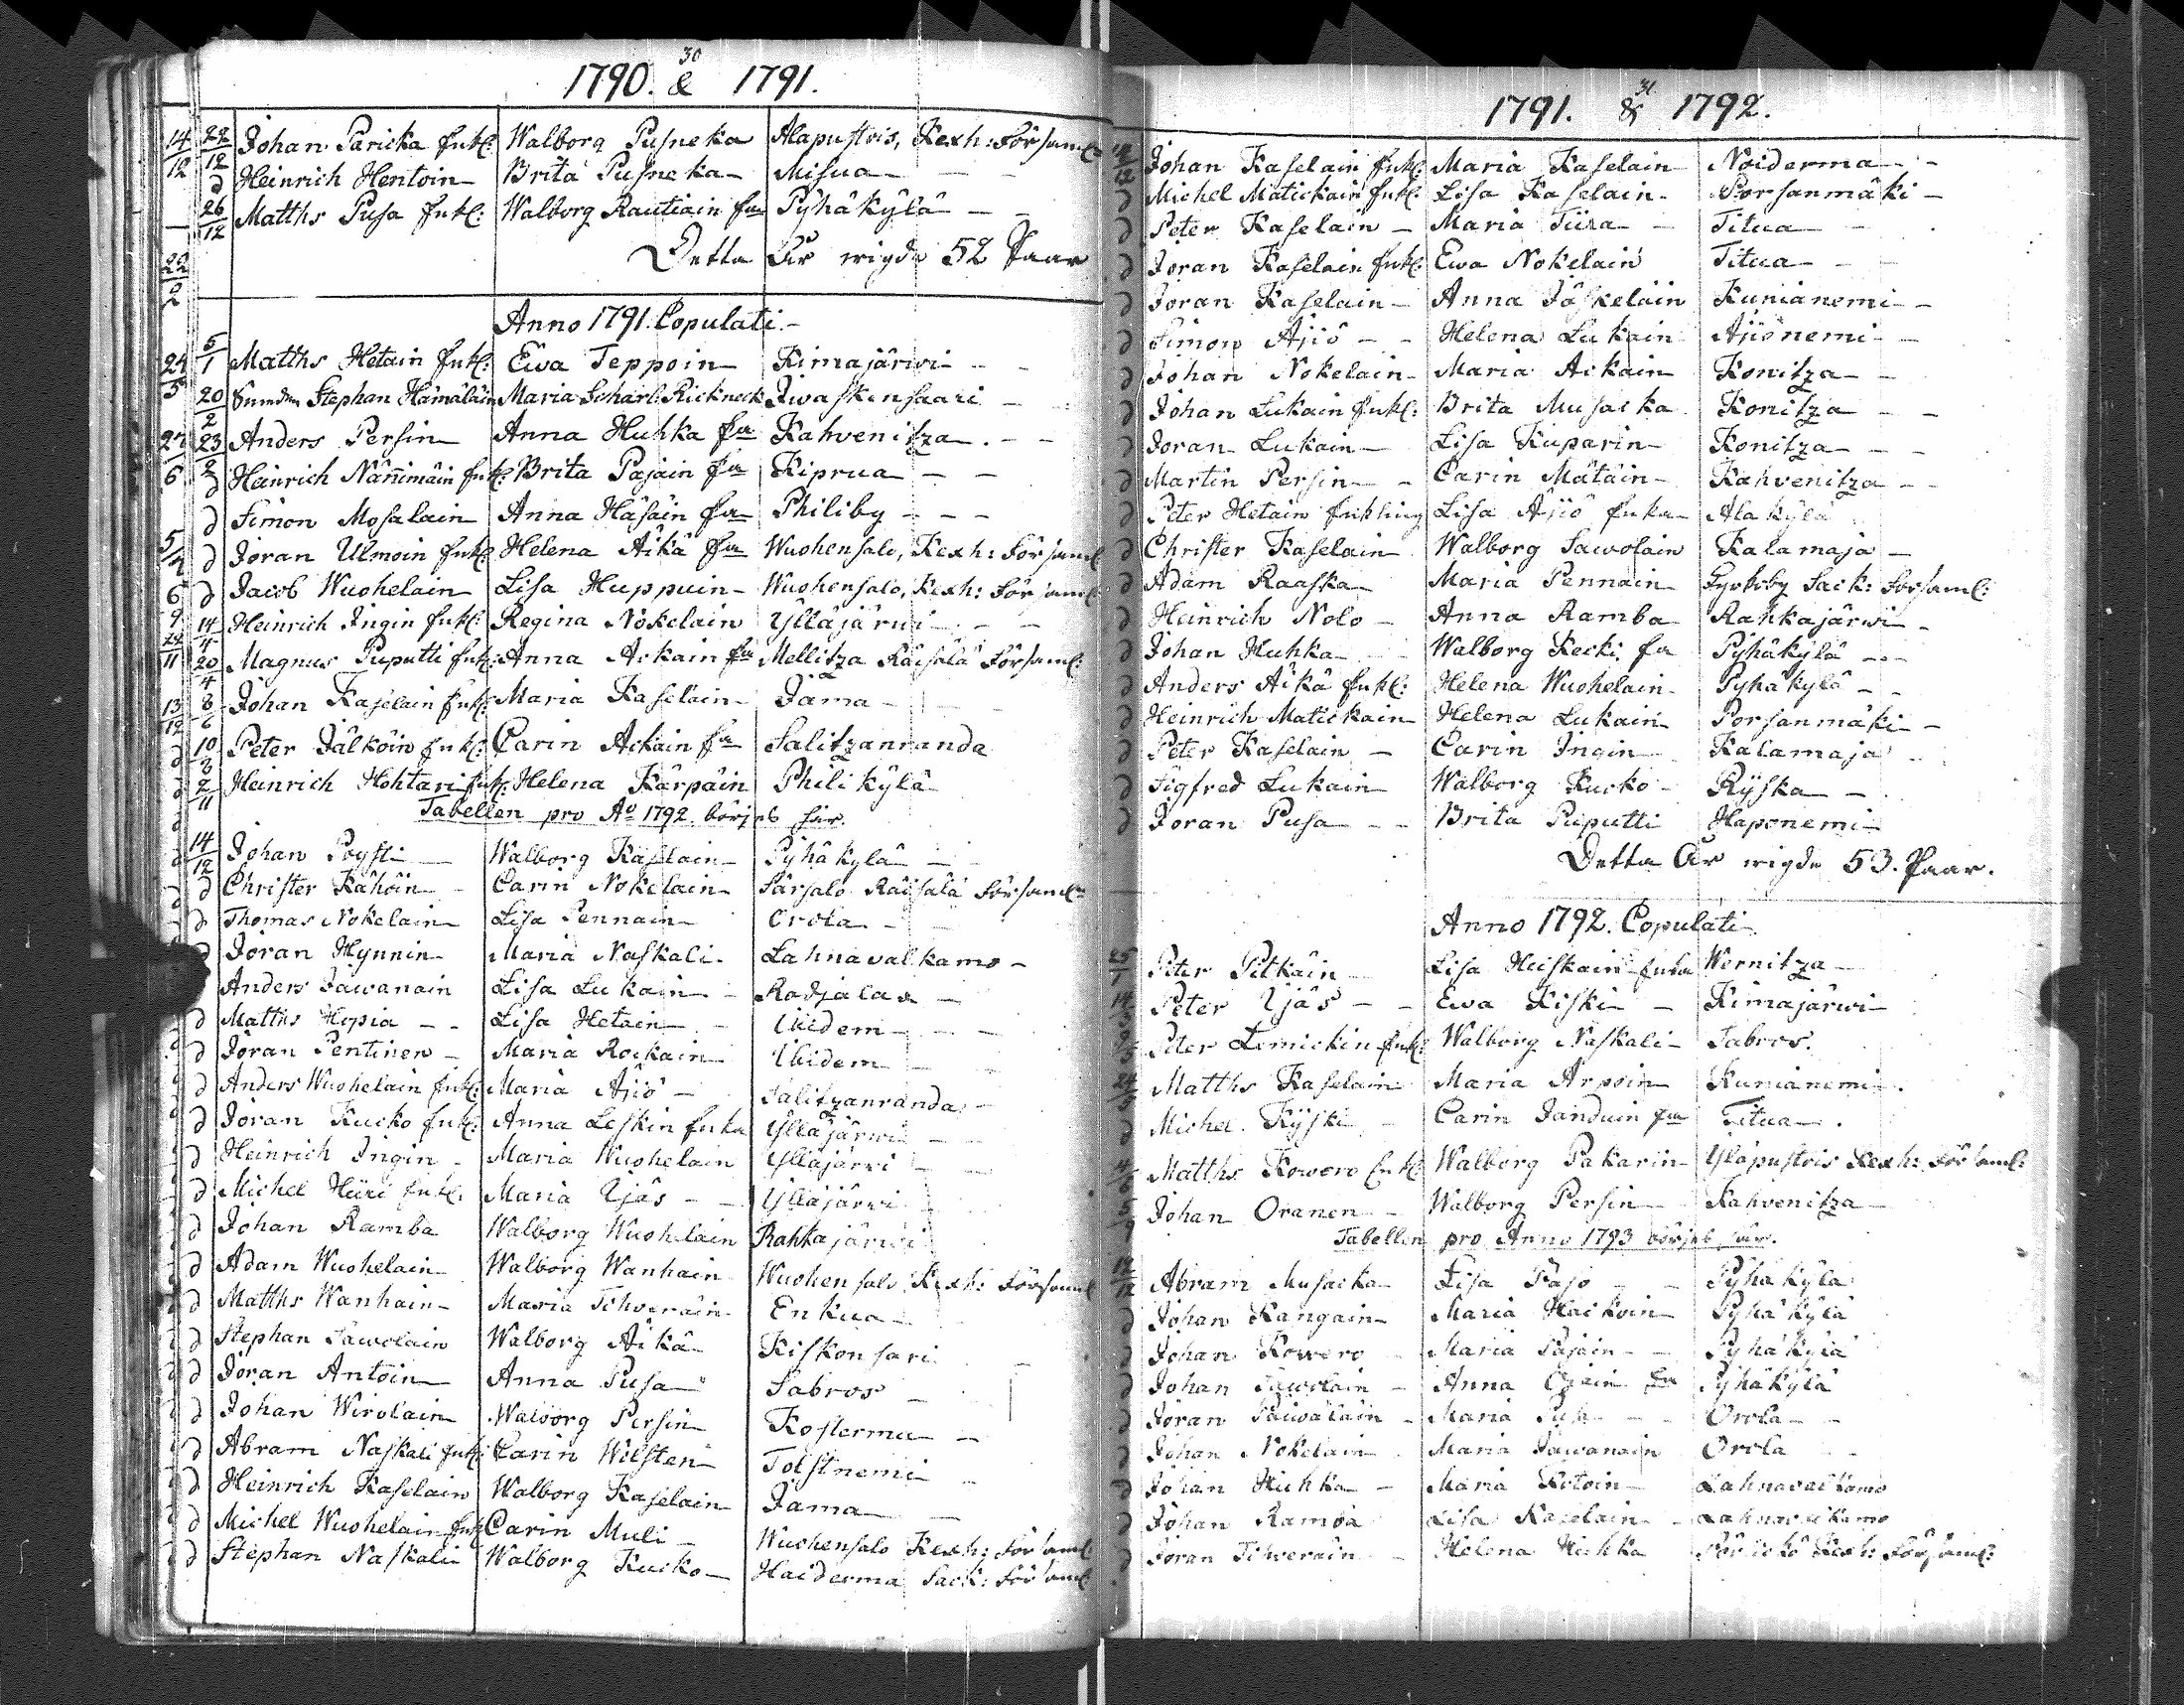 30
1790. & 1791.
14/12 22/12 Johan Paricka Enkl: Walborg Pusneka Alapustois, Kexh: Församl:
d Heinrich Hentoin Brita Pusneka Misua
26/12 Matths Pusa Enkl: Walborg Rautiain Ea Pÿhäkÿlä
Detta År wigde 52 Paar
Anno 1791. Copulati.
5/1 Matths Hetain Enkl: Ewa Teppoin Kimajärwi
20/2 Stephan Hämäläin Maria Jwaskensaari
23/2 Anders Persin Anna Huhka Ea Kahvenitza
d Heinrich Brita Pajain Ea Kiprua
d Simon Mosalain Anna Häsäin Ea Philiby
d Jöran Ulmoin Enkl: Helena Äikä Ea Wuohensalo, Kexh: Församl:
d Jacob Wuohelain Lisa Huppuin Wuohensalo, Kexh: Församl:
14/4 Heinrich Ingin Enkl: Regina Nokelain Ylläjärwi
20/4 Magnus Puputti Enkl: Anna Askain Ea Mellitza Räisälä Församl:
6/6 Johan Kaselain Enkl: Maria Kaselain Jama
10/ Peter Jälköin Enkl: Carin Askain Ea Salitzanranda
2/11 Heinrich Hohtari Enkl: Helena Kärpäin Philikÿlä
Tabellen pro Ao 1792 börjas här.
14/12 Johan Poysti Walborg Käselain Pÿhäkylä
d Christer Kähöin Carin Nokelain Särsalo Räisälä Församl:
d Thomas Nokelain Lisa Pennain Orola
d Jöran Hynnin Maria Naskali Lahnavalkamo
Anders Jawanain Lisa Lukain Radjalax
d Matths Hopia Lisa Hetain Ibidem
d Jöran Pentinen Maria Rockain Ibidem
d Anders Wuohelain Enkl: Maria Äjiö Salitzanranda
d Jöran Kucko Enkl: Anna Leskin Enka Ylläjärwi
d Heinrich Ingin Maria Wuohelain Ylläjärwi
d Michel Hiiri Enkl: Maria Yjäs Ylläjärwi
d Johan Ramba Walborg Wuohelain Rahkajärwi
d Adam Wuohelain Walborg Wanhain Wuohensalo Kexh: Församl
d Matths Wanhain Maria Tihveräin Enkua
d Stephan Sawolain Walborg Äikä Kiskonsari
d Jöran Antoin Anna Pusa Sabros
d Johan Wirolain Walborg Persin Kosterma
d Abram Naskali Enkl: Carin Wilsten Tolstnemi
d Heinrich Kaselain Walborg Kaselain Jama
d Michel Wuohelain Enkl Carin Muli Wuohensalo Kexh: Församl:
d Stephan Naskali Walborg Kucko Haiderma Sack: Församl:
31
1791. & 1792.
14/12 Johan Kaselain Enkl: Maria Kaselain Noiderma
d Michel Matickain Enkl: Lisa Kaselain Porsanmäki
d Peter Kaselain Maria Tiira Titua
d Jöran Kaselain Enkl: Ewa Nokelain Titua
d Jöran Kaselain Anna Jäskeläin Kunianemi
d Simon Äjiö Helena Lukain Äjiönemi
d Johan Nokelain Maria Askain Konitza
d Johan Lukain Enkl: Brita Musacka Konitza
d Jöran Lukain Lisa Kuparin Konitza
d Martin Persin Carin Mätäin Kahvenitza
d Peter Hetain Enkling Lisa Äjiö Enka Alakÿlä
d Christer Kaselain Walborg Sawolain Kalamaja
d Adam Raaska Maria Pennain Sack: Församl:
d Heinrich Nolo Anna Ramba Rahkajärwi
d Johan Huhka Walborg Kecki Ea Pÿhäkÿlä
d Anders Äikä Enkl: Helena Wuohelain Pÿhäkylä
d Heinrich Matickain Helena Lukain Porsanmäki
d Peter Kaselain Carin Ingin Kalamaja
d Sigfred Lukain Walborg Kucko Rÿska
d Jöran Pusa Brita Puputti Haponemi
Detta År wigde 53. Paar.
Anno 1792. Copulati
Peter Pitkäin Lisa Heiskain Enka Wernitza
Peter Yjäs Ewa Kiski Kimajärwi
Peter Lemickin Enkl: Walborg Naskali Sabros.
Matths Kaselain Maria Arpoin Kunianemi.
d Michel Kÿski Carin Janduin Ea Titua.
Matths Kowero Enkl: Walborg Pakarin Yläpustois Kexh: Församl:
Johan Oranen Walborg Persin Kahvenitza
Tabellen pro Anno 1793 börjas här.
Abram Musacka Lisa Pÿhäkÿlä
d Johan Kangain Maria Hackoin Pÿhäkÿlä
d Johan Kowero Maria Pajain Pÿhäkÿlä
d Johan Sawolain Anna Ea Pÿhäkÿlä
d Jöran Maria Pusa Orola
d Johan Nokelain Maria Jawanain Orola
d Johan Huhka Maria Kotoin Lahnavalkamo
d Johan Ramba Lisa Kaselain Lahnavalkamo
d Jöran Tihveräin Helena Huhka Kexh: Församl: